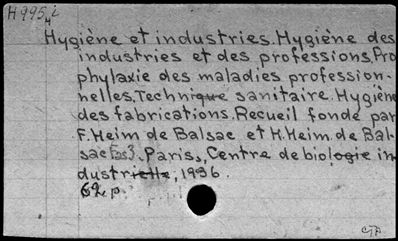 H995 i
H
Hygiène et industries. Hygiène des
industries et des professions. Pro
phylaxie des maladies profession-
nelles. Technique sanitaire. Hygiène
des fabrications. Recueil fondé par
F. Heim de Balsac et H. Heim de Bal-
sac Fas 3. Paris, Centre de biologie in
dustrielle, 1936.
62 p.